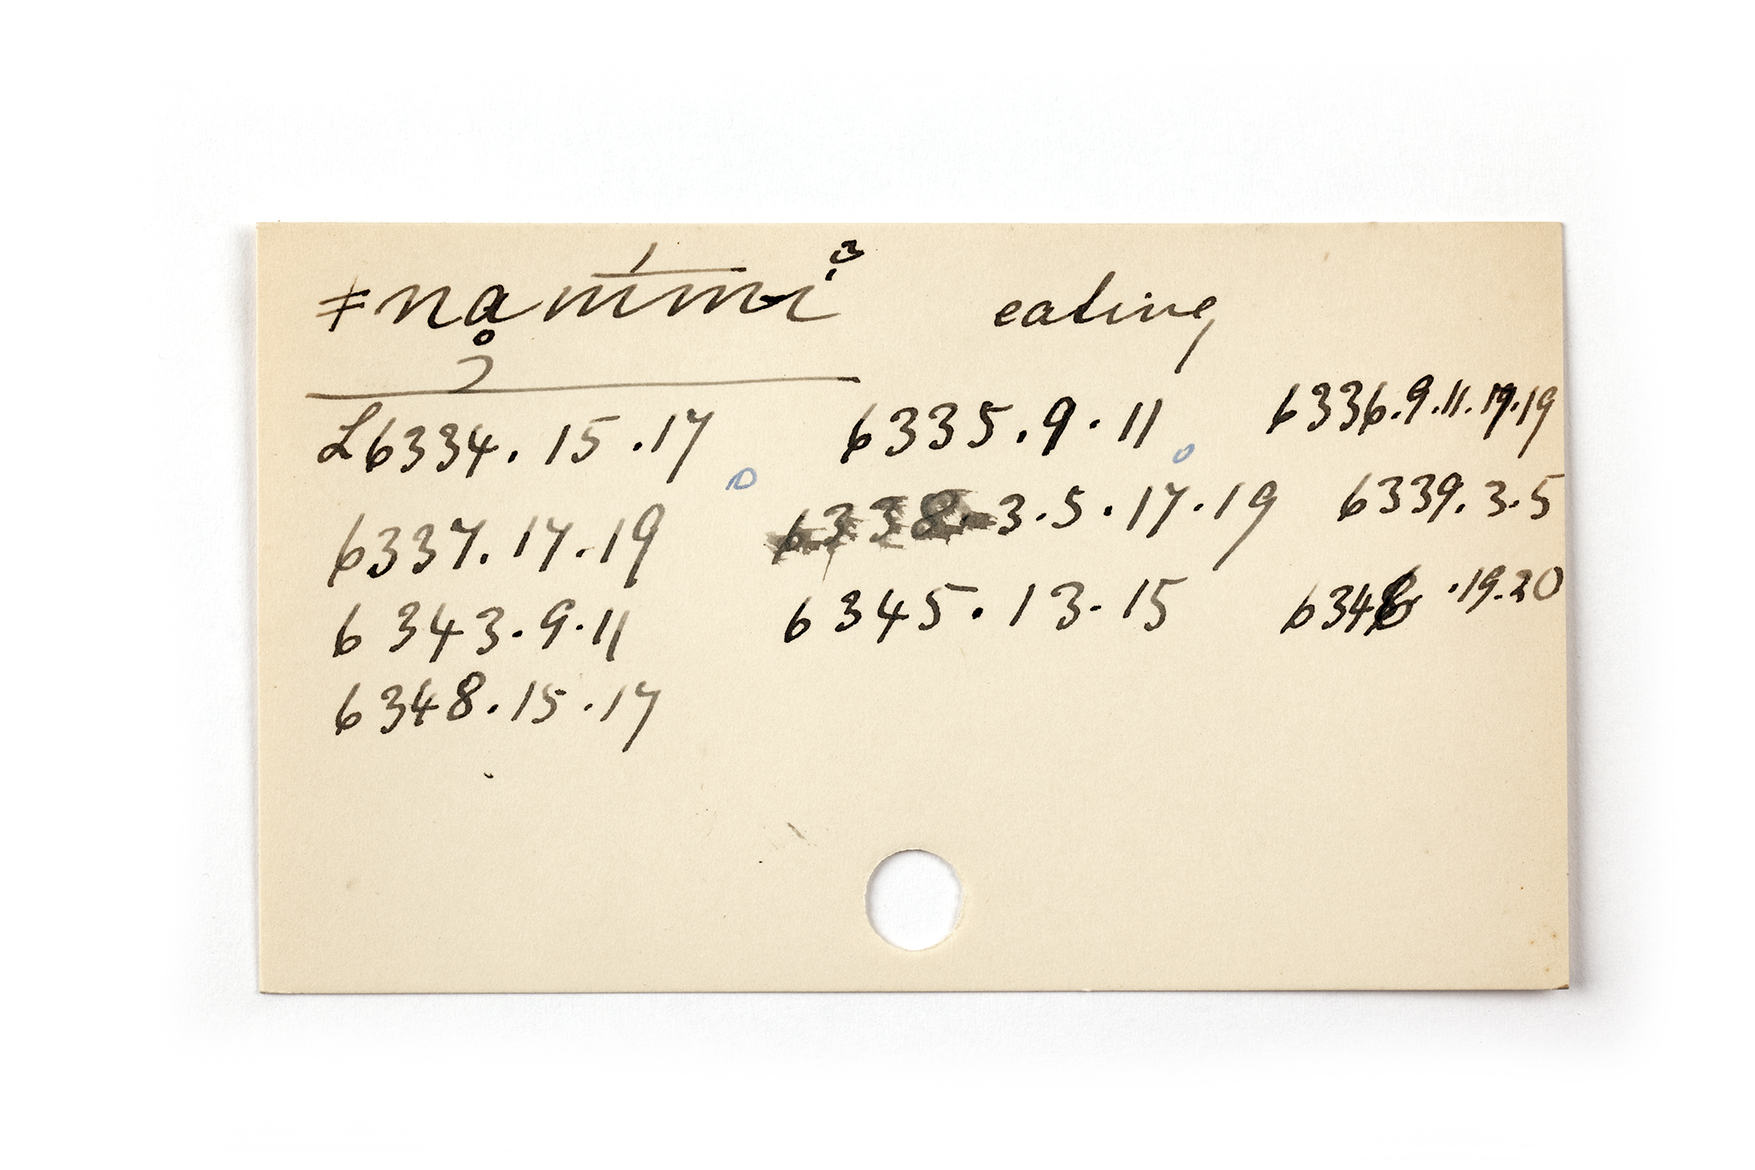 ǂnḁm̄m̄í eating
L6334.15.17 6335.9.11 6336.9.11.19.19
6337.17.19 6338.3.5.17.19 6339.3.5
6343.9.11 6345.13.15 .19.20
6348.15.17